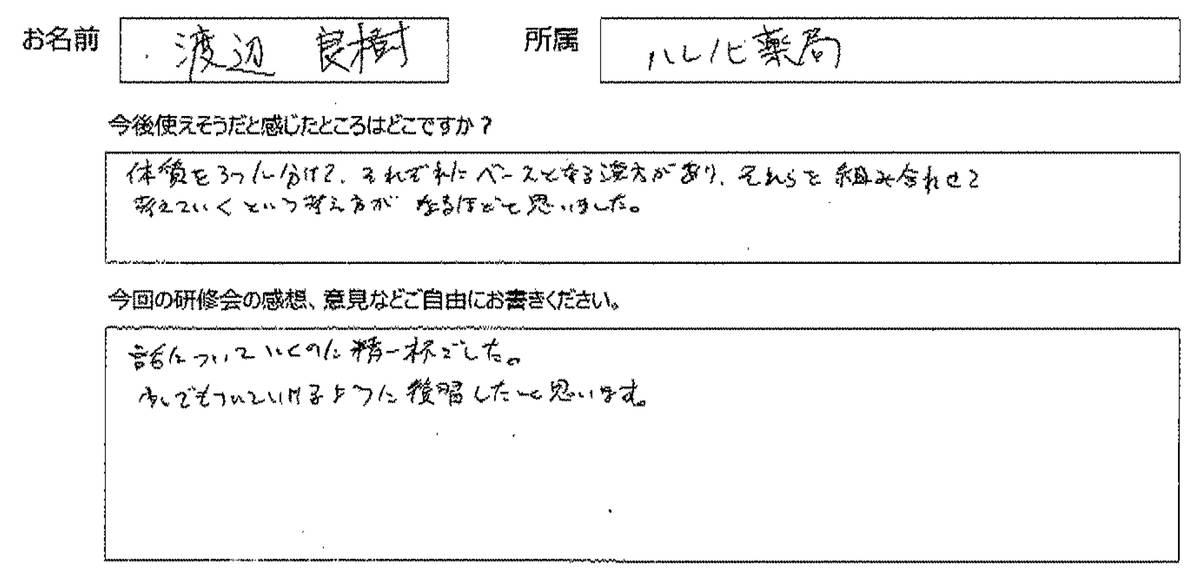 お名前 渡辺 良樹 所属 ハレノヒ薬局
今後使えそうだと感じたところはどこですか？
体質を3つに分けて、それぞれにベースとなる漢方があり、それらを組み合わせて
考えていくという考え方がなるほどと思いました。
今回の研修会の感想、意見などご自由にお書きください。
話についていくのに精一杯でした。
少しでもついていけるように復習したいと思います。